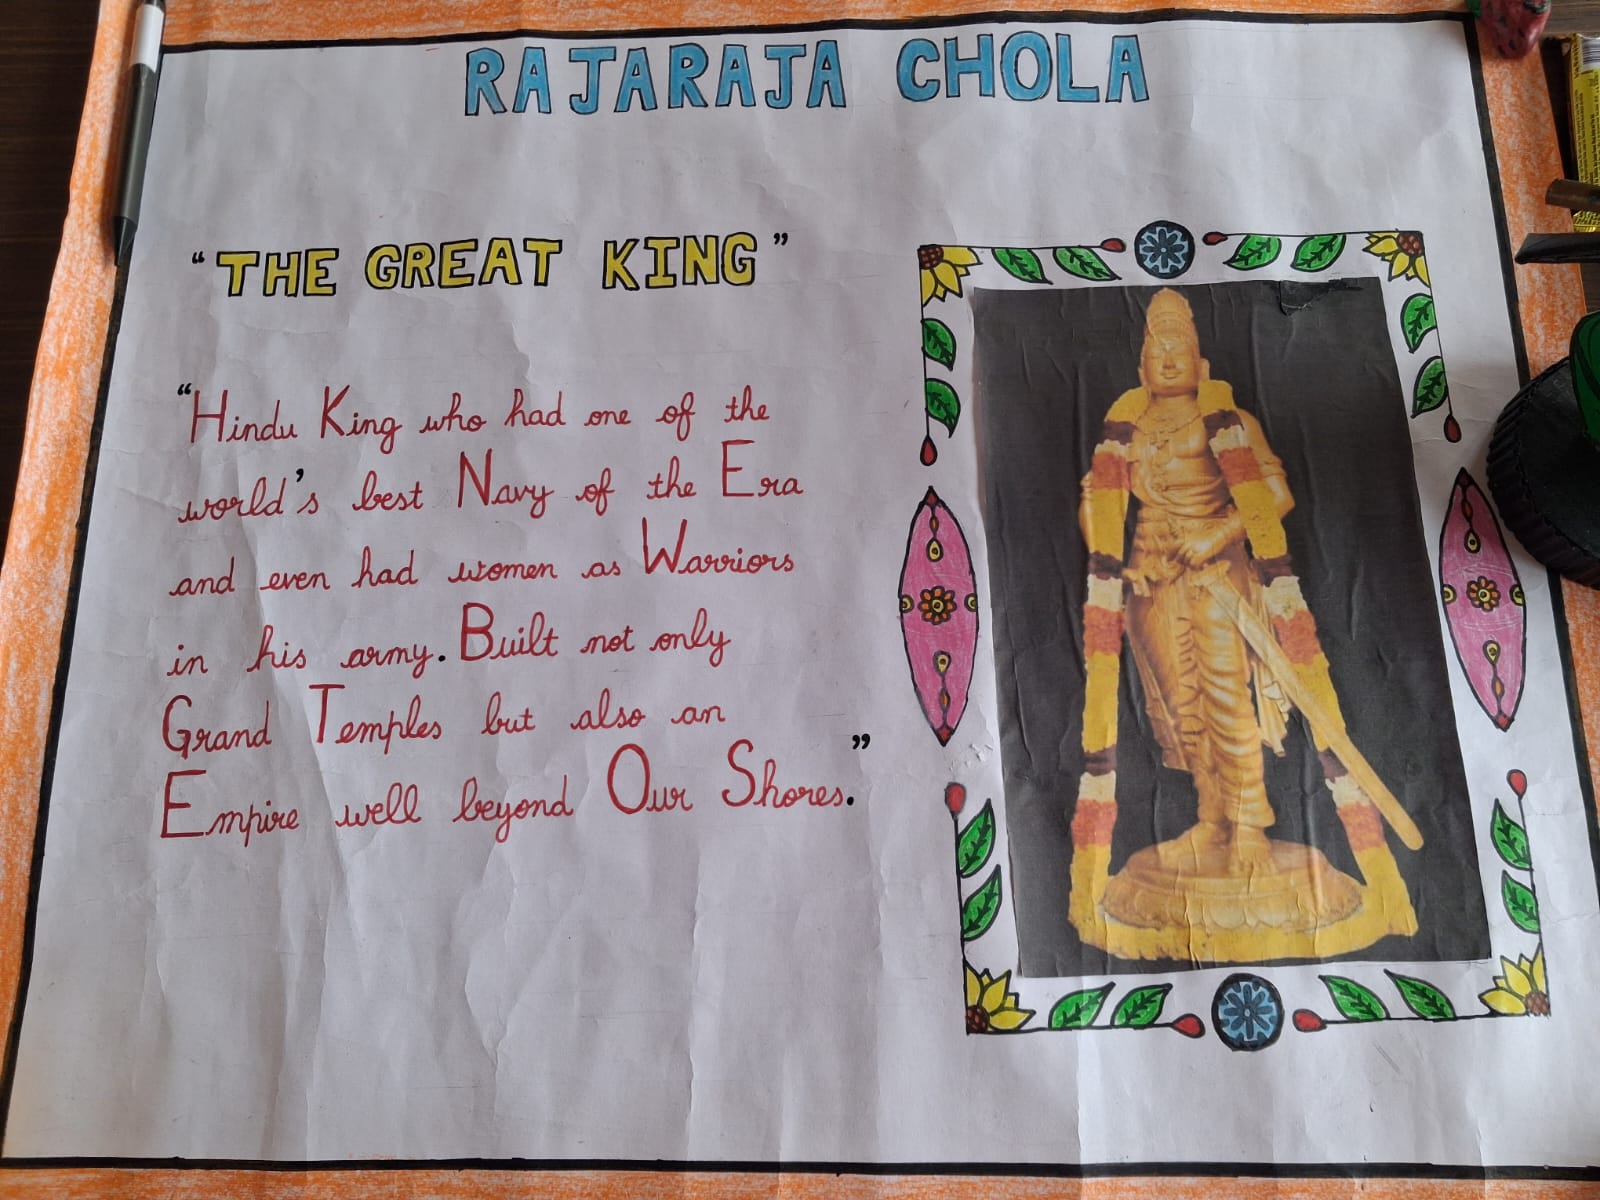 RAJARAJA CHOLA
"THE GREAT KING"
"Hindu King who had one of the
world's best Navy of the Era
and even had women as Warriors
in his army. Built not only
Grand Temples but also an
Empire well beyond Our Shores."